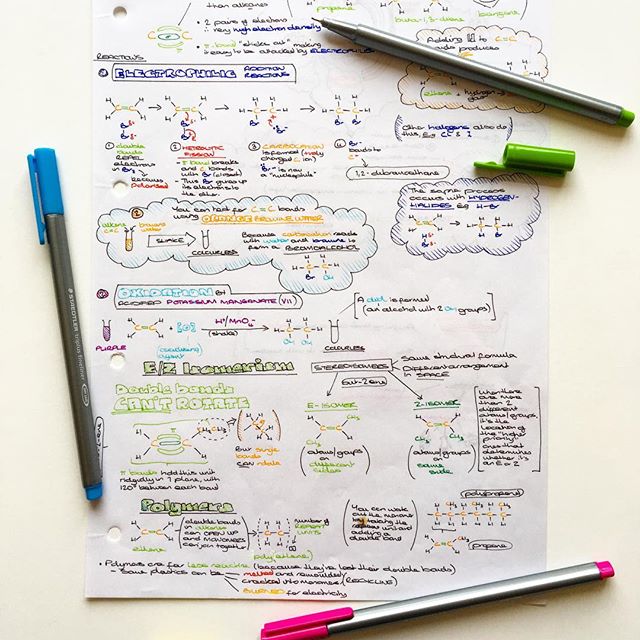 than alkanes
• 2 pairs of electrons
∴ very high electron density
• π bond "sticks out" making
it easy to be attacked by ELECTROPHILES
propene
buta-1,3-diene
Adding H2 to C=C
produces
ethene + hydrogen
gas
REACTIONS
① ELECTROPHILIC ADDITION REACTIONS
Other halogens also do
this, Eg Cl & I
① double
bonds
REPEL
electrons
in Br2
Br2 becomes
Polarised
② HETEROLYTIC
FISSION
π bond breaks
and C bonds
with Br (closest)
This Br gives up
its electrons to
the other
③ CARBOCATION
is formed (+vely
charged C ion)
Br⁻ is now
a "nucleophile"
④ Br⁻
bonds to
C⁺
1,2-dibromoethane
The same process
occurs with HYDROGEN-
HALIDES Eg H-Br
You can test for C=C bonds
using ORANGE BROMINE WATER
alkene
C=C
bromine
water
SHAKE
COLOURLESS
Because carbocation reacts
with water and bromine to
form a BROMOALCOHOL
② OXIDATION BY
ACIDIFIED POTASSIUM MANGANATE (VII)
PURPLE
+ [O]
(oxidising
agent)
H⁺/MnO4⁻
(shake)
COLOURLESS
A diol is formed
(an alcohol with 2 OH groups)
E/Z Isomerism
STEREOISOMERS
Same structural formula
Different arrangement
in SPACE
Double bonds
CAN'T ROTATE
But single
bonds
CAN rotate
π bonds hold this unit
rigidly in 1 plane, with
120° between each bond
E-ISOMER
CH3
CH3
atoms/groups
on
different sides
Z-ISOMER
CH3
CH3
atoms/groups
on
same side
When there
are more
than 2
different
atoms/groups,
it's the
location of
the "higher
priority"
ones that
determines
whether it's
an E or Z
Polymers
ethene
double bonds
in alkenes
can OPEN UP
and MONOMERS
can join together
number of
REPEAT
UNITS
poly(ethene)
You can work
out the monomer
by taking the
repeat unit and
adding a
double bond
polypropene
propene
• Polymers are far less reactive (because they've lost their double bonds)
- Some plastics can be melted and remoulded
cracked into monomers (RECYCLING)
BURNED for electricity
STAEDTLER triplus fineliner